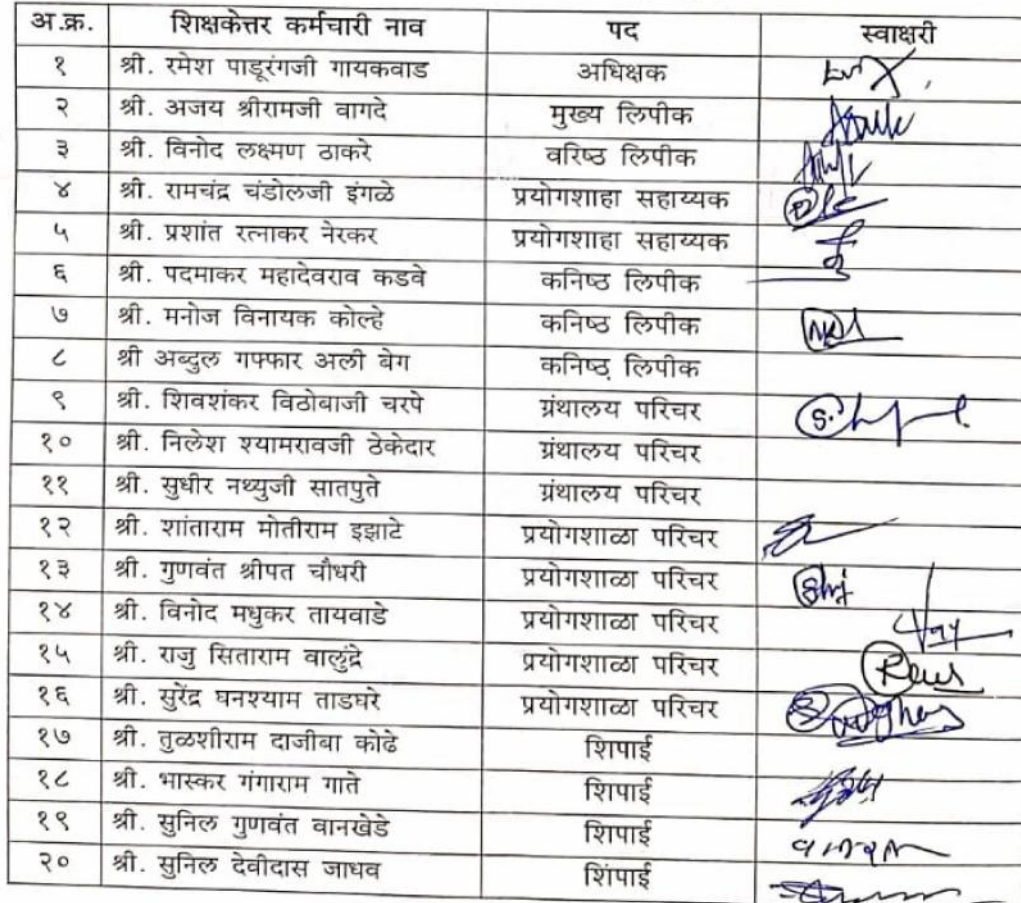 अ.क्र. शिक्षकेत्तर कर्मचारी नाव पद स्वाक्षरी
१ श्री. रमेश पाडूरंगजी गायकवाड अधिक्षक
२ श्री. अजय श्रीरामजी वागदे मुख्य लिपीक
३ श्री. विनोद लक्ष्मण ठाकरे वरिष्ठ लिपीक
४ श्री. रामचंद्र चंडोलजी इंगळे प्रयोगशाहा सहाय्यक
५ श्री. प्रशांत रत्नाकर नेरकर प्रयोगशाहा सहाय्यक
६ श्री. पदमाकर महादेवराव कडवे कनिष्ठ लिपीक
७ श्री. मनोज विनायक कोल्हे कनिष्ठ लिपीक
८ श्री अब्दुल गफ्फार अली बेग कनिष्ठ लिपीक
९ श्री. शिवशंकर विठोबाजी चरपे ग्रंथालय परिचर
१० श्री. निलेश श्यामरावजी ठेकेदार ग्रंथालय परिचर
११ श्री. सुधीर नथ्युजी सातपुते ग्रंथालय परिचर
१२ श्री. शांताराम मोतीराम इझाटे प्रयोगशाळा परिचर
१३ श्री. गुणवंत श्रीपत चौधरी प्रयोगशाळा परिचर
१४ श्री. विनोद मधुकर तायवाडे प्रयोगशाळा परिचर
१५ श्री. राजु सिताराम वालुंद्रे प्रयोगशाळा परिचर
१६ श्री. सुरेंद्र घनश्याम ताडघरे प्रयोगशाळा परिचर
१७ श्री. तुळशीराम दाजीबा कोढे शिपाई
१८ श्री. भास्कर गंगाराम गाते शिपाई
१९ श्री. सुनिल गुणवंत वानखेडे शिपाई
२० श्री. सुनिल देवीदास जाधव शिंपाई